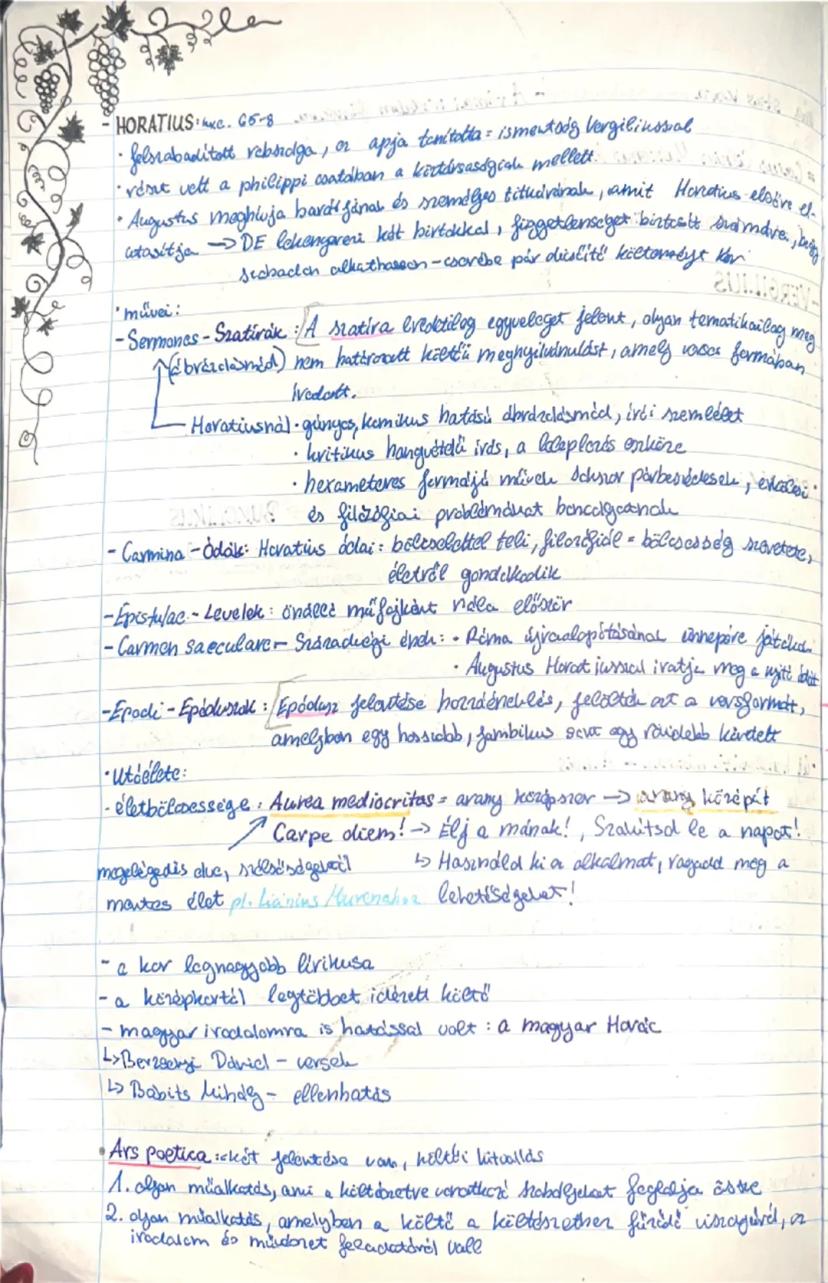 - HORATIUS: i.e. 65-8
· felszabadított rabszolga, az apja tanította = ismeretség Vergiliussal
· részt vett a philippi csatában a köztársaságiak mellett
· Augustus meghívja barátjának és személyes titkárának, amit Horatius elsőre el-
utasítja → DE lekenyerezi két birtokkal, függetlenséget biztosít számára, hogy
szabadon alkothasson - cserébe pár dicsőítő költeményt kér
· művei:
- Sermones - Szatírák: A szatíra eredetileg egyveleget jelent, olyan tematikailag meg
(ábrázolásmód) nem határozott költői megnyilvánulást, amely vers formában
íródott.
Horatiusnál · gúnyos, komikus hatású ábrázolásmód, írói szemlélet
· kritikus hangvételű írás, a leleplezés eszköze
· hexameteres formájú művek sokszor párbeszédesek, erkölcsi
és filozófiai problémákat boncolgatnak
- Carmina - Ódák: Horatius ódái: bölcselettel teli, filozófiái = bölcsesség szeretete,
életről gondolkodik
- Epistulae - Levelek: önálló műfajként nála először
- Carmen saeculare - Századévi ének: · Róma újraalapításának ünnepére játékok
· Augustus Horatiussal íratja meg a nyitó ódát
- Epodi - Epóduszok: Epódusz jelentése hozzáéneklés, jelölték azt a versformát,
amelyben egy hosszabb, jambikus sort egy rövidebb követett
· Utóélete:
- életbölcsessége: Aurea mediocritas = arany középszer → arany középút
Carpe diem! → Élj a mának!, Szakítsd le a napot!
megelégedés elve, szélsőségektől ↳ Használd ki a alkalmat, ragadd meg a
mentes élet pl. Licinius Murenához lehetőségeket!
- a kor legnagyobb lírikusa
- a középkortól legtöbbet idézett költő
- magyar irodalomra is hatással volt: a magyar Horác
↳ Berzsenyi Dániel - versek
↳ Babits Mihály - ellenhatás
· Ars poetica: két jelentése van, költői hitvallás
1. olyan műalkotás, ami a költészetre vonatkozó szabályokat foglalja össze
2. olyan műalkotás, amelyben a költő a költészethez fűződő viszonyáról, az
irodalom és művészet feladatáról vall